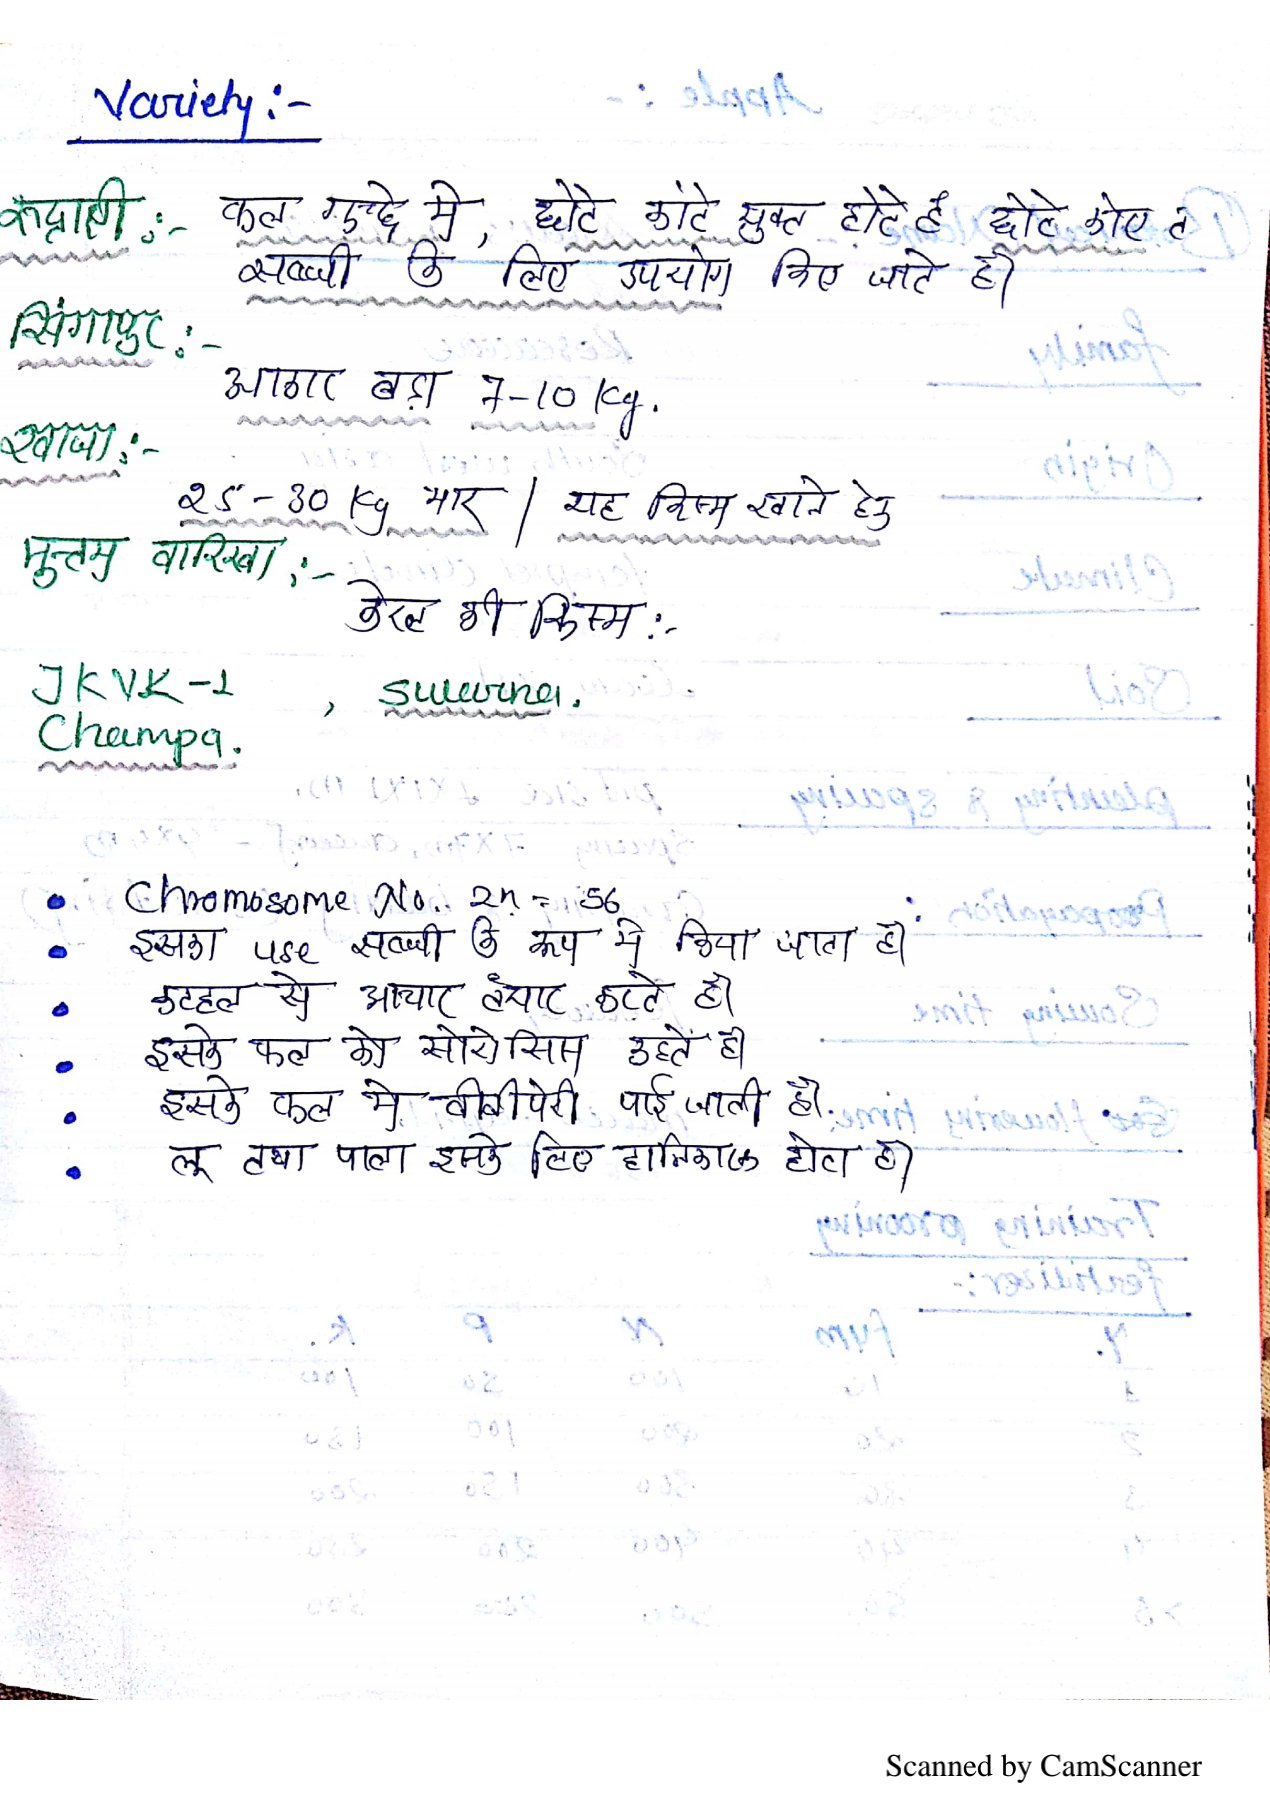 Variety :-
रूद्राक्षी :- फल गुच्छे मे, छोटे कांटे युक्त होते है छोटे कोए व
सब्जी के लिए उपयोग किए जाते है।
सिंगापुर :-
आकार बड़ा 7-10 Kg.
खाजा :-
25-30 Kg भार / यह किस्म खाने हेतु
मुत्तम वारिखा :-
केरल की किस्म :-
JKVK-1 , suwarna.
Champa.
• Chromosome No. 2n = 56
• इसका use सब्जी के रूप मे किया जाता है।
• कटहल से आचार तैयार करते है।
• इसके फल को सोरोसिस कहते है।
• इसके फल मे वीवीपेरी पाई जाती है।
• लू तथा पाला इसके लिए हानिकारक होता है।
Scanned by CamScanner